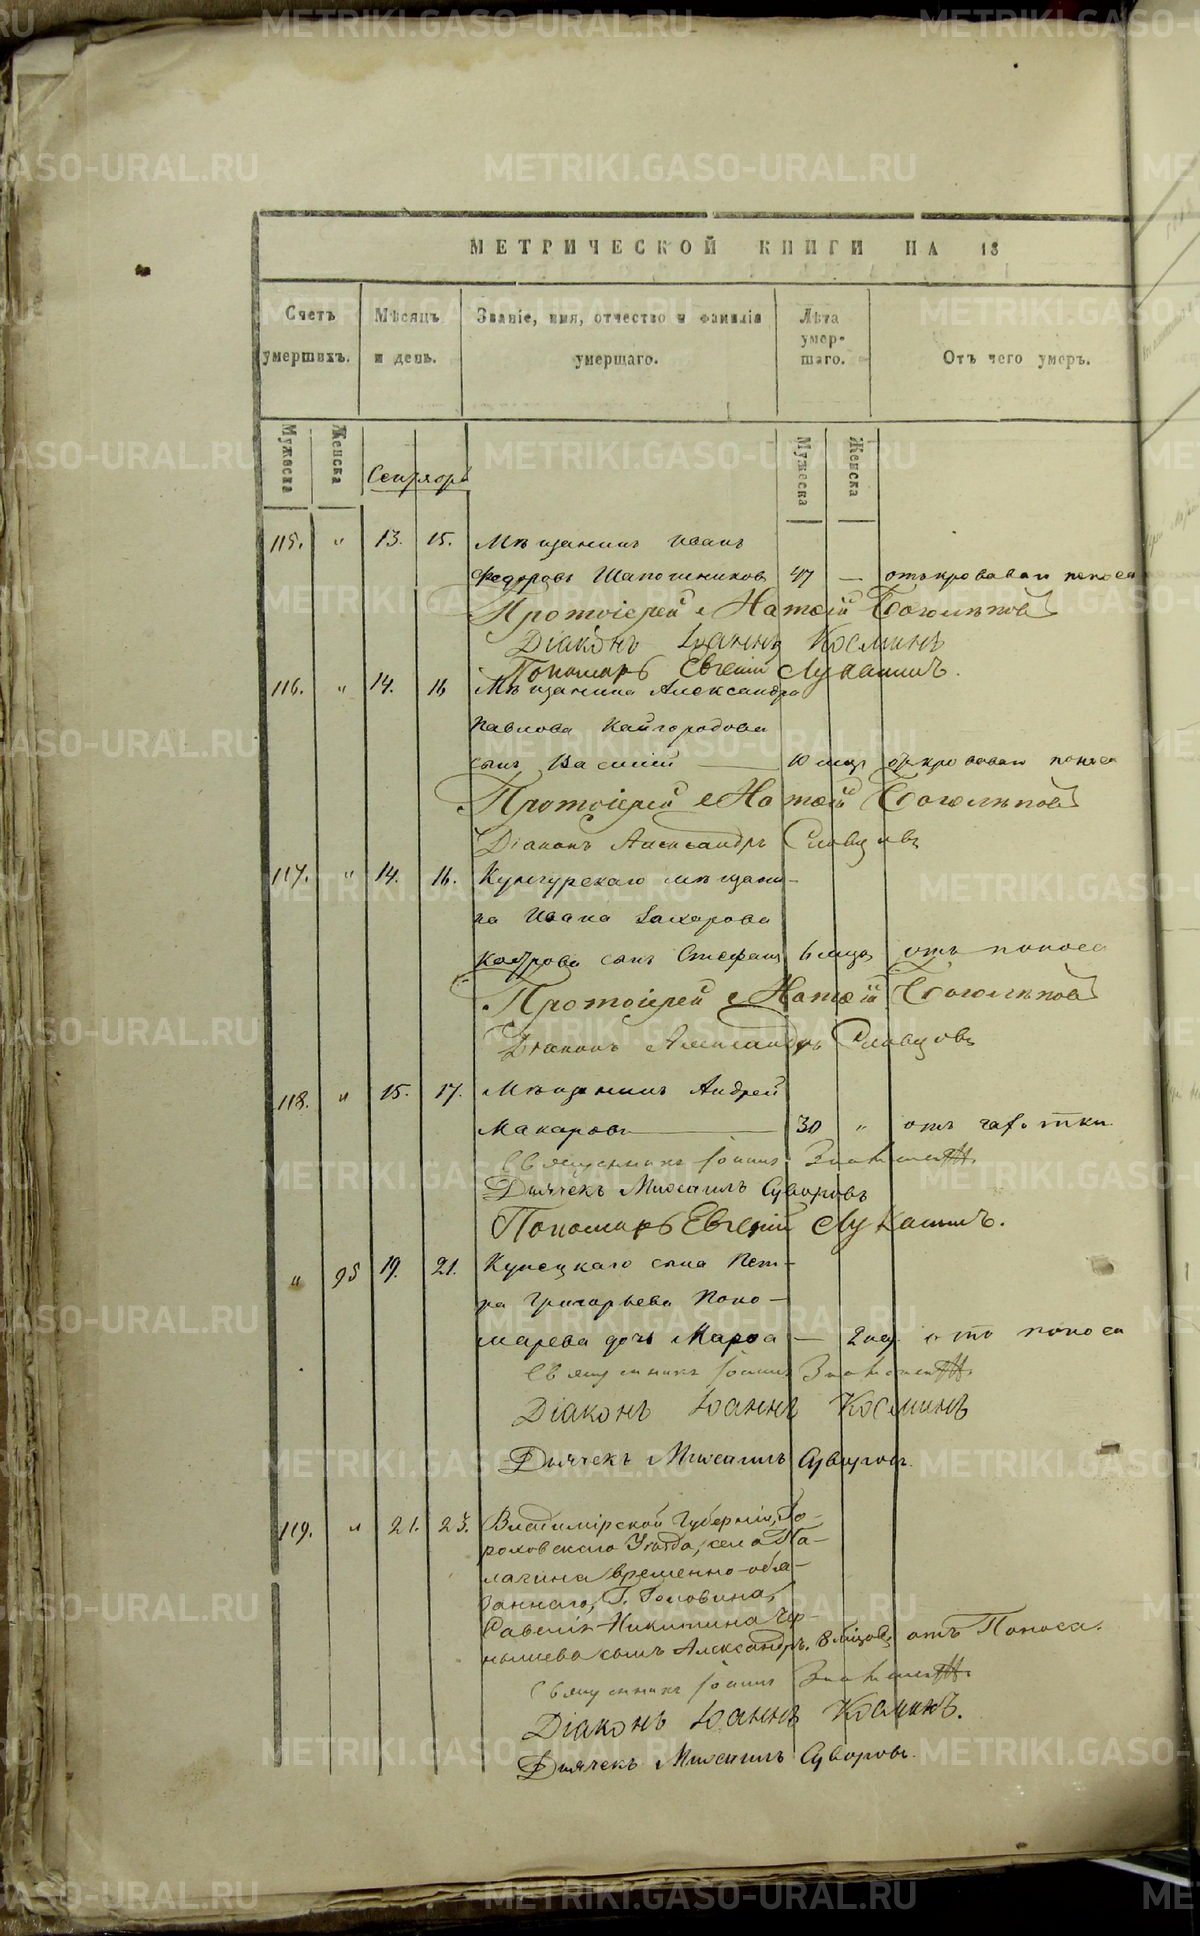 МЕТРИЧЕСКОЙ КНИГИ НА 18
Счетъ умершихъ.
Мѣсяцъ и день.
Званіе, имя, отчество и фамилія умершаго.
Лѣта умер-шаго.
Отъ чего умеръ.
Мужеска
Женска
Сентябрь
Мужеска
Женска
115. " 13. 15. Мѣщанинъ Иванъ
Федоровъ Шапошниковъ 47 — отъ кроваваго поноса
Протоіерей Боголѣповъ
Діаконъ Іоаннъ Косминъ
Пономарь Евгеній Лукашинъ.
116. " 14. 16 Мѣщанина Александра
Павлова Кайгородова
сынъ Василій — 10 мѣс. кроваваго поноса
Протоіерей Боголѣповъ
Діаконъ Александръ Словцовъ
117. " 14. 16. Кунгурскаго мѣщани-
на Ивана Захарова
сынъ Стефанъ 6 мѣсц. отъ поноса
Протоіерей Боголѣповъ
Діаконъ Александръ Словцовъ
118. " 15. 17. Мѣщанинъ Андрей
Макаровъ — 30 " отъ чахотки
Священникъ Іоаннъ
Дьячекъ Михаилъ Суворовъ
Пономарь Евгеній Лукашинъ.
" 95 19. 21. Купецкаго сына Пет-
ра Григорьева Поно-
марева дочь Марѳа — 2 нед. отъ поноса
Священникъ Іоаннъ
Діаконъ Іоаннъ Косминъ
Дьячекъ Михаилъ Суворовъ.
119. " 21. 23. Владимірской Губерніи, Го-
роховскаго Уѣзда, села Па-
лагина временно-обя-
заннаго, Г. Головина,
Савелія Никитина Чер-
нышева сынъ Александръ. 8 мѣсяцовъ отъ Поноса.
Священникъ Іоаннъ
Діаконъ Іоаннъ Косминъ.
Дьячекъ Михаилъ Суворовъ.
METRIKI.GASO-URAL.RU